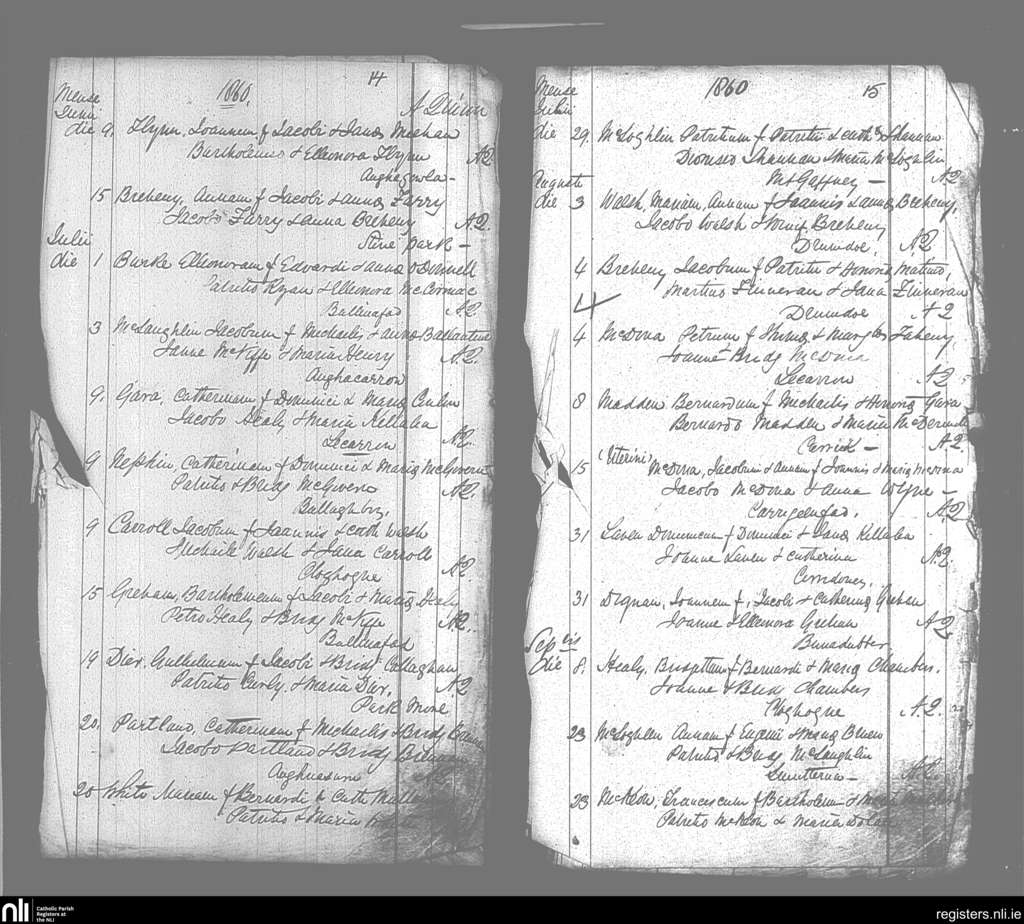 14
1860.
A Quinn
Mense
Junii
die 9. Flynn, Joannem f Jacobi & Janæ Meehan
Bartholemeo & Elleonora Flynn A.Q.
Aughagowla -
15 Breheny, Annam f Jacobi & Annæ Farry
Jacobo Farry & Anna Breheny A.Q.
park -
Julii
die 1 Burke Elleonoram f Edvardi & Annæ O Donnell
Patritio Ryan & Elleonora McCormac
Ballinafad A.Q.
3 McLaughlin Jacobum f Michaelis & Annæ Ballantine
McKiffe & Maria Henry A.Q.
Aughacarron
9. Gara, Catherinam f Dominici & Mariæ
Jacobo Healy & Maria Kellaha
Lecarron A.Q.
9 Catherinam f Dominici & Mariæ McGovern
Patritio & Bridg McGovern A.Q.
9 Carroll Jacobum f Joannis & Cath Walsh
Michaele Walsh & Jana Carroll
Cloghogue A.Q
15 Greham, Bartholemeum f Jacobi & Mariæ Healy
Petro Healy & Bridg McKiffe A.Q.
Ballinafad
19 Dier, Gulhelmum f Jacobi & Bridt Callaghan
Patritio Curly, & Maria Dier, A.Q
Park
20. Partland, Catherinam f Michaelis & Bridg
Jacobo Partland & Bridg
20 White Mariam f Bernardi & Cath
Patritio & Maria
1860
15
Mense
Julii
die 29. McLoghlin Patritium f Patritii & Cathæ Shannan
Dionisio Shannan & Maria McLoghlin
Mt Gaffney - A.Q
Augusti
die 3 Walsh, Mariam, Annam f Joannis & Annæ Breheny,
Jacobo Walsh & Breheny
Drumdoe, A.Q
4 Breheny Jacobum f Patritii & Honoriæ
Martino Finneran & Jana Finneran
Drumdoe A Q
4 McDona Petrum f & Faheny,
Joanne & Bridg McDona
Lecarron A.Q
8 Madden Bernardum f Michaelis & Honoriæ Gara
Bernardo Madden & Maria McDermott
Carrick - A.Q.
(Uterini)
15 McDona, Jacobum & Annam f Joannis & Mariæ McDona
Jacobo McDona & Anna Wyne -
Carrigeenfad. A.Q
31 Laven Dominicum f Dominici & Janæ Kellaha
Joanne Laven & Catherina A.Q.
31 Dignan, Joannem f, Jacobi & Catherinæ Greham
Joanne & Elleonora Greham A Q
Bunadubber
Sepbris
die 8. Healy, f Bernardi & Mariæ Chambers.
Joanne & Bridg Chambers
Cloghogue A.Q.
23 McLoghlin Annam f Eugenii & Mariæ
Patritio & Bridg McLaughlin
A.Q
23 McKeon, Franciscum f Bartholemei & Maria
Patritio McKeon & Maria Dolan
nli
Catholic Parish
Registers at
the NLI
registers.nli.ie